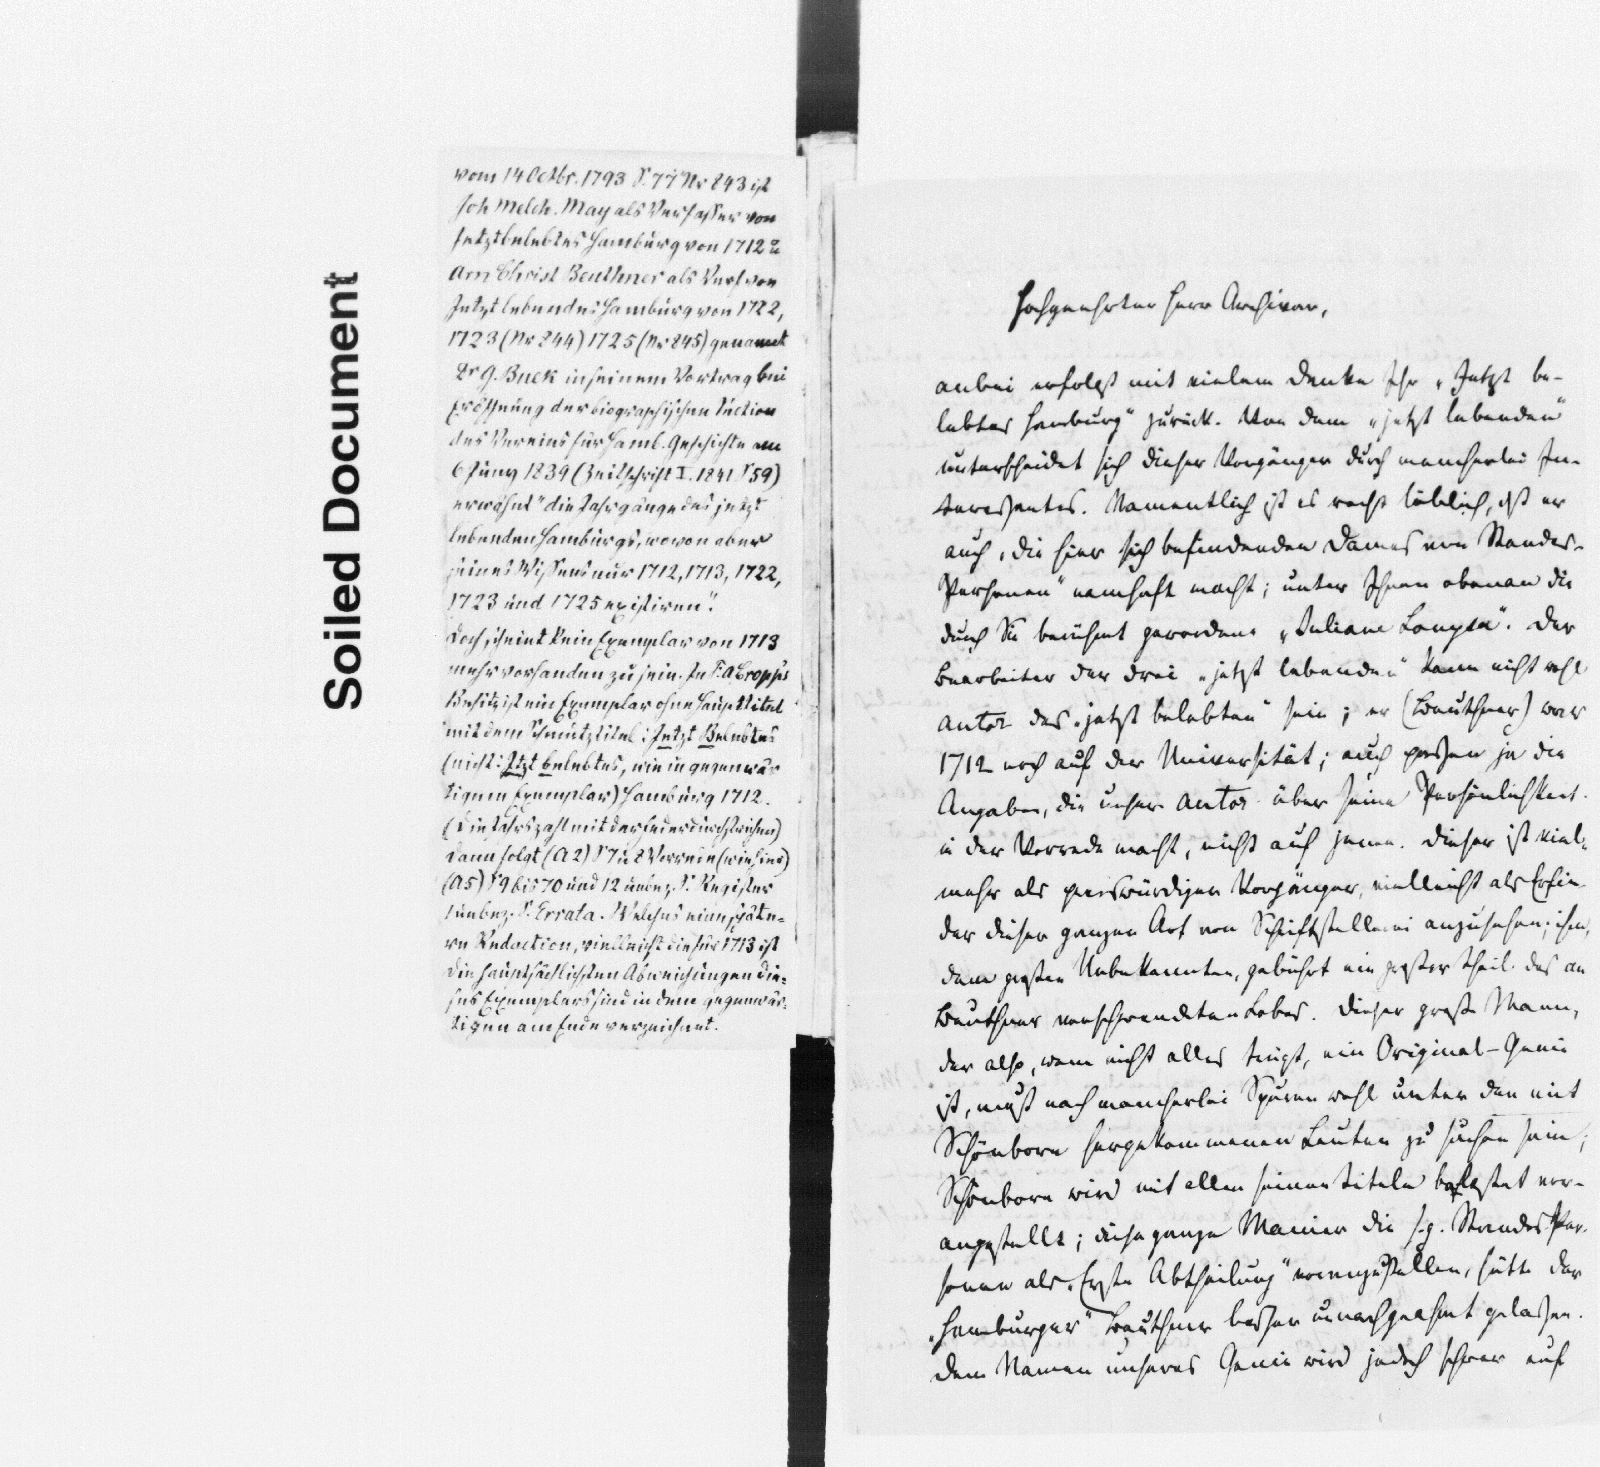 Soiled Document
vom 14 Octbr. 1793 S. 77 Nr 843 ist
Joh Melch. May als Verfasser von
Jetztbelebtes Hamburg von 1712 &
Arn Christ Beuthner als Verf von
Jetzt lebendes Hamburg von 1722,
1723 (Nr 844) 1725 (Nr 845) genannt
Dr G. Buek in seinem Vortrag bei
Eröffnung der biographischen Section
des Vereins für Hamb. Geschichte am
6 Juny 1839 (Zeitschrift I. 1841 S 59)
erwähnt "die Jahrgänge des jetzt
lebenden Hamburgs, wovon aber
seines Wissens nur 1712, 1713, 1722,
1723 und 1725 existiren".
Doch scheint kein Exemplar von 1713
mehr vorhanden zu sein. In F. A Cropp's
Besitz ist ein Exemplar ohne Haupttitel
mit dem Schmutztitel: Jetzt Belebtes
(nicht: Itzt belebtes, wie in gegenwär
tigem Exemplar) Hamburg 1712.
(Die Jahrszahl mit der Feder durchstrichen)
Dann folgt (A2) S 7 u 8 Vorrede (wie hier)
(A5) S 9 bis 70 und 12 unbez. S. Register
1 unbez. S. Errata. Welches eine späte-
re Redaction, vielleicht die für 1713 ist
Die hauptsächlichsten Abweichungen die-
ses Exemplars sind in dem gegenwär-
tigen am Ende verzeichnet.
Hochgeehrter Herr Archivar,
anbei erfolgt mit vielem Danke Ihr „Jetzt be-
lebtes Hamburg" zurück. Von dem „jetzt lebenden"
unterscheidet sich dieser Vorgänger durch mancherlei In-
teressantes. Namentlich ist es recht löblich, dß er
auch „die hier sich befindenden Dames von Standes-
Personen" namhaft macht; unter Ihnen obenan die
durch Sie berühmt gewordene „Juliane Louysa". Der
Bearbeiter der drei „jetzt lebenden" kann nicht wohl
Autor des „jetzt belebten" sein; er (Beuthner) war
1712 noch auf der Universität; auch passen ja die
Angaben, die unser Autor über seine Persönlichkeit
in der Vorrede macht, nicht auf jenen. Dieser ist viel-
mehr als preiswürdiger Vorgänger, vielleicht als Erfin-
der dieser ganzen Art von Schriftstellerei anzusehen; ihm,
dem großen Unbekannten, gebührt ein großer Theil des an
Beuthner verschwendeten Lobes. Dieser große Mann,
der also, wenn nicht alles trügt, ein Original-Genie
ist, muß nach mancherlei Spuren wohl unter den mit
Schönborn hergekommenen Leuten zu suchen sein;
Schönborn wird mit allen seinen Titeln vor-
angestellt; diese ganze Manier die s.g. Standes Per-
sonen als „Erste Abtheilung" voranzustellen, hätte der
„Hamburger" Beuthner besser unnachgeahmt gelassen.
Dem Namen unseres Genie wird jedoch schwer auf